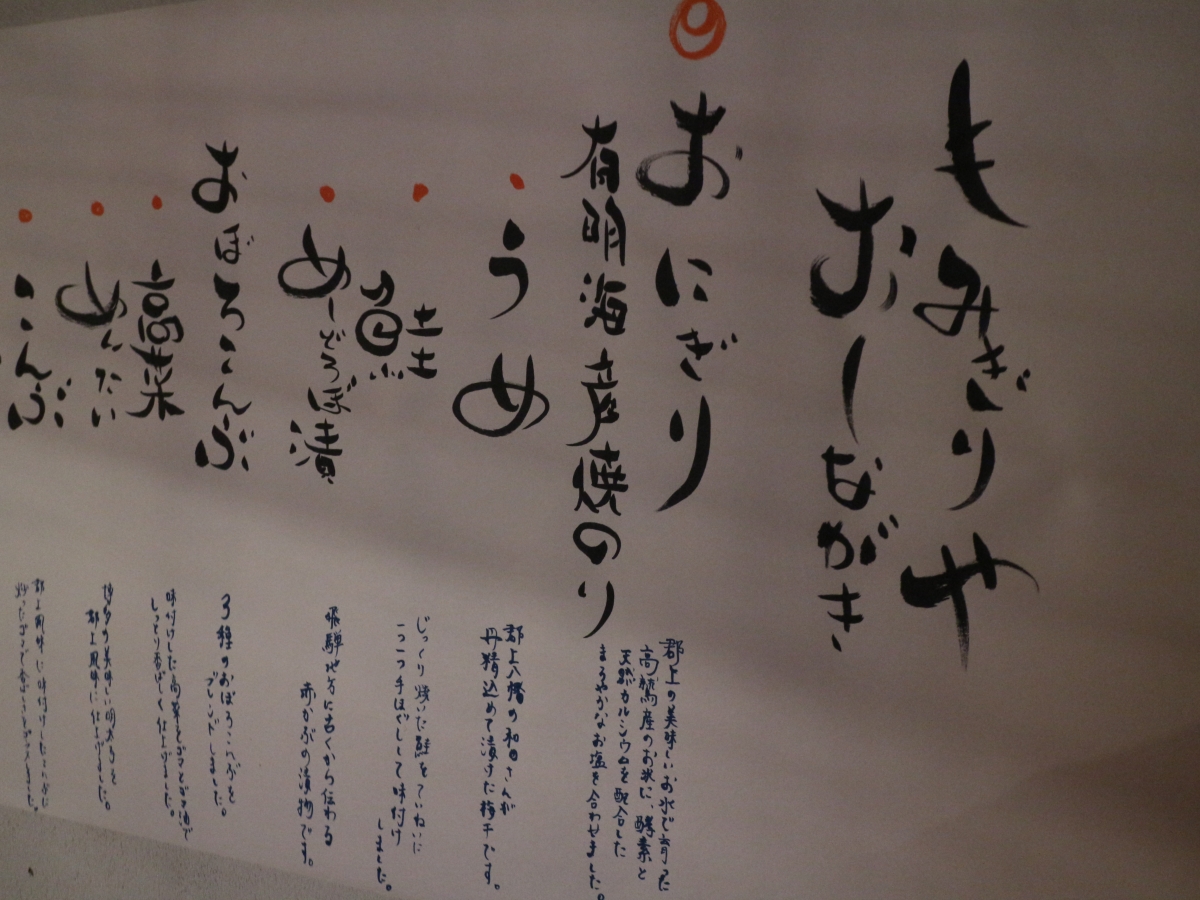 もみぎりや
おしながき
おにぎり
有明海産焼のり
郡上の美味しいお水で育った
高鷲産のお米に、酵素と
天然カルシウムを配合した
まろやかなお塩を合わせました。
うめ
郡上八幡の和田さんが
丹精込めて漬けた梅干です。
鮭
じっくり焼いた鮭をていねいに
一つ一つ手ほぐしして味付け
しました。
めしどろぼ漬
飛騨地方に古くから伝わる
赤かぶの漬物です。
おぼろこんぶ
3種のおぼろこんぶを
ブレンドしました。
高菜
味付けした高菜をごまとごま油で
しっとり香ばしく仕上げました。
めんたい
博多の美味しい明太子を
郡上風味に仕上げました。
こんぶ
郡上風味に味付けしたこんぶに